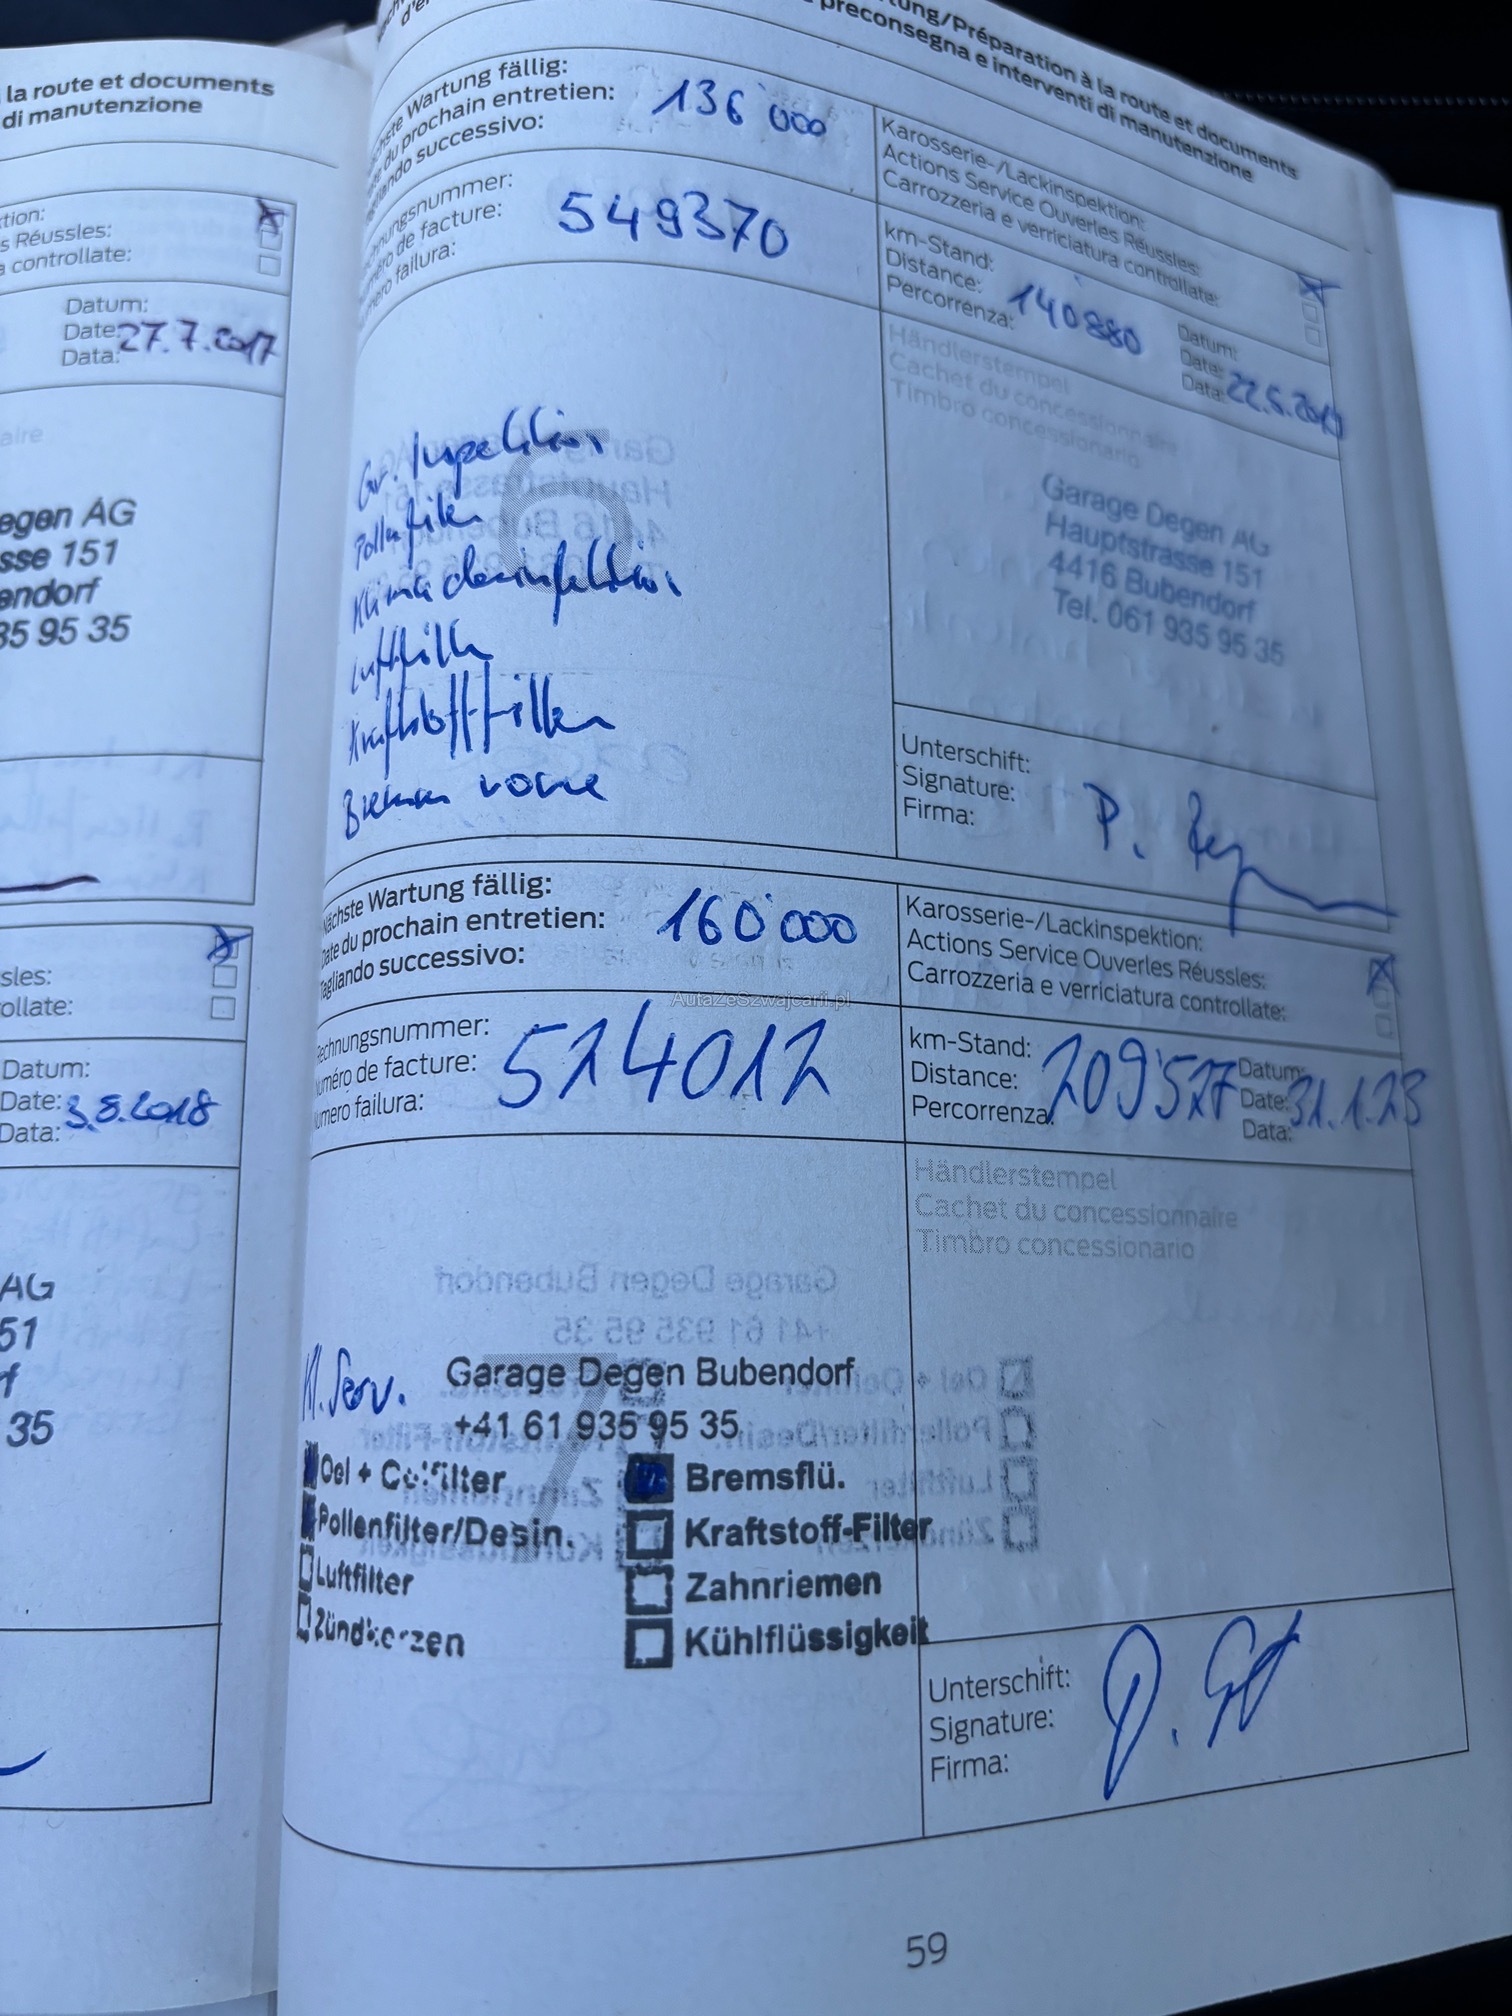 la route et documents
di manutenzione
s Réussles:
controllate:
Datum:
Date: 27.7.2017
Data:
egen AG
sse 151
endorf
35 95 35
sles:
ollate:
Datum:
Date: 3.8.2018
Data:
AG
51
f
35
ung/Préparation à la route et documents
preconsegna e interventi di manutenzione
Wartung fällig:
du prochain entretien: 136'000
successivo:
Karosserie-/Lackinspektion:
Actions Service Ouverles Réussles:
Carrozzeria e verriciatura controllate:
nungsnummer:
de facture: 549370
failura:
km-Stand:
Distance: 140880
Percorrenza:
Datum:
Date:
Data: 22.5.2019
Händlerstempel
Cachet du concessionnaire
Timbro concessionario
6
Gr. Inspektion
Pollenfilter
Klimadesinfektion
Luftfilter
Kraftstofffilter
Bremsen vorne
Garage Degen AG
Hauptstrasse 151
4416 Bubendorf
Tel. 061 935 95 35
Unterschift:
Signature:
Firma:
Nächste Wartung fällig:
Date du prochain entretien: 160'000
Tagliando successivo:
Karosserie-/Lackinspektion:
Actions Service Ouverles Réussles:
Carrozzeria e verriciatura controllate:
AutaZeSzwajcarii.pl
Rechnungsnummer:
Numéro de facture: 524012
Numero failura:
km-Stand:
Distance: 209527
Percorrenza:
Datum:
Date: 31.1.23
Data:
Händlerstempel
Cachet du concessionnaire
Timbro concessionario
7
Kl. Serv.
Garage Degen Bubendorf
+41 61 935 95 35
Oel + Oelfilter
Bremsflü.
Pollenfilter/Desin.
Kraftstoff-Filter
Luftfilter
Zahnriemen
Zündkerzen
Kühlflüssigkeit
Unterschift:
Signature:
Firma:
59